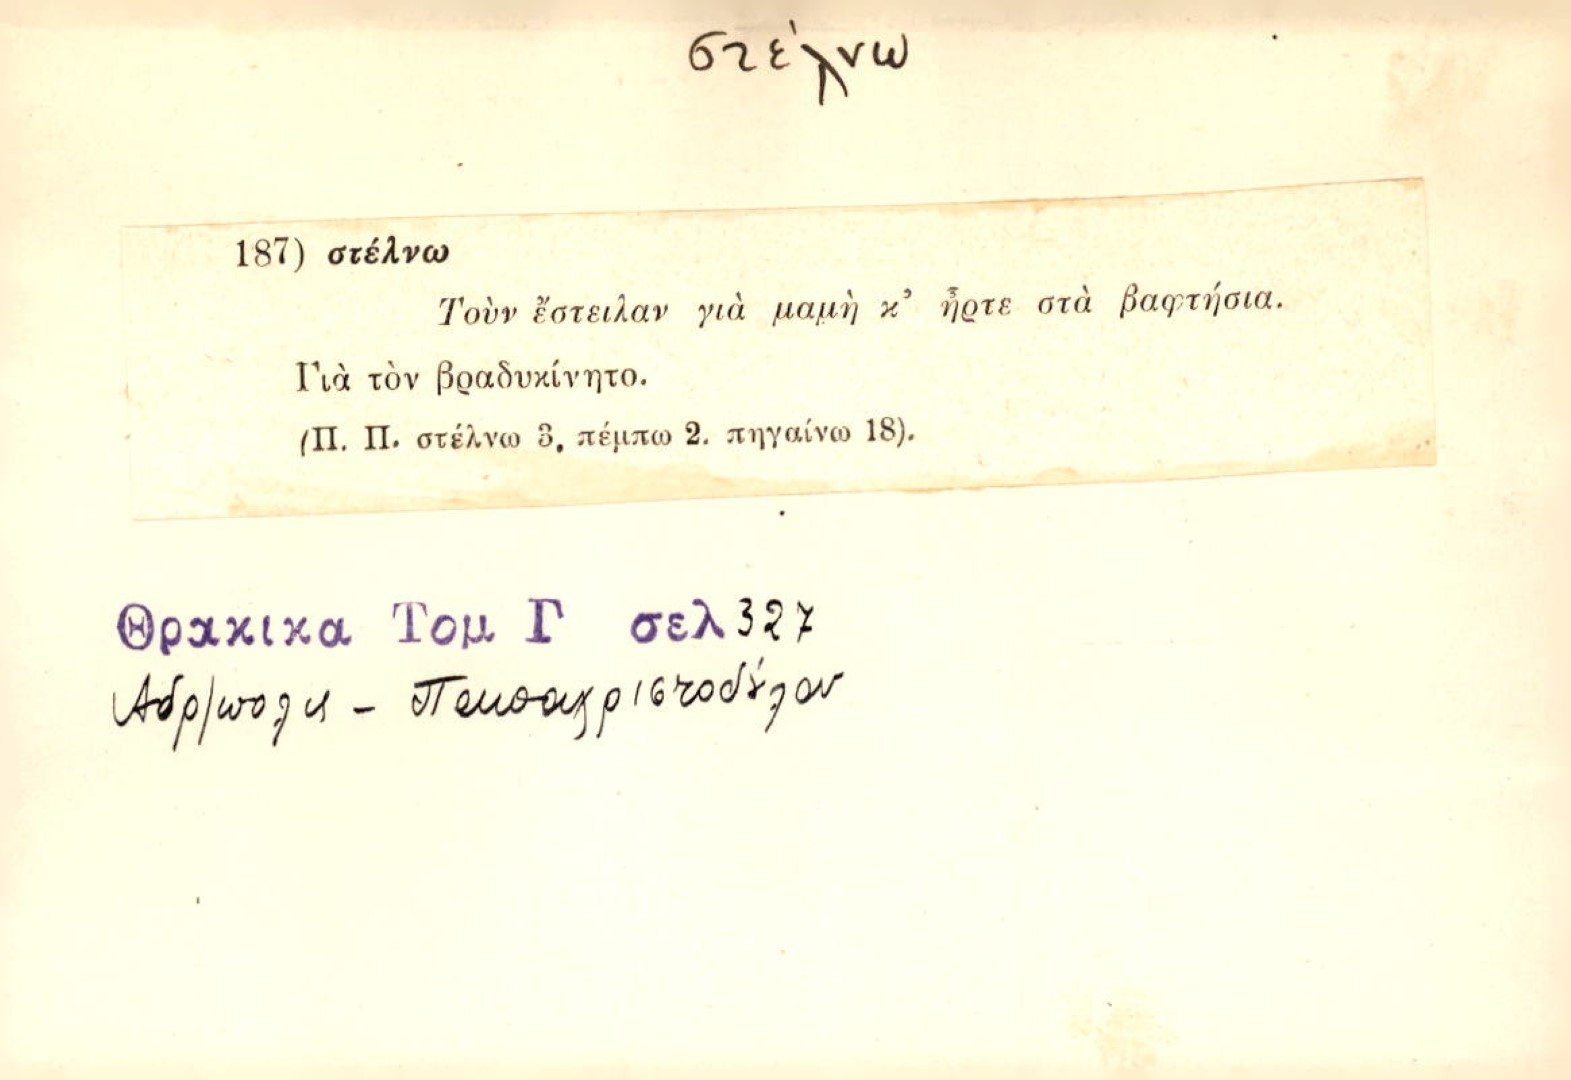 στέλνω
187) στέλνω
Τοὺν ἔστειλαν γιὰ μαμὴ κ’ ἦρτε στὰ βαφτήσια.
Γιὰ τὸν βραδυκίνητο.
(Π. Π. στέλνω 3, πέμπω 2. πηγαίνω 18).
Θρακικα Τομ Γ σελ 327
Αδρ/πολις - Παπαχριστοδούλου